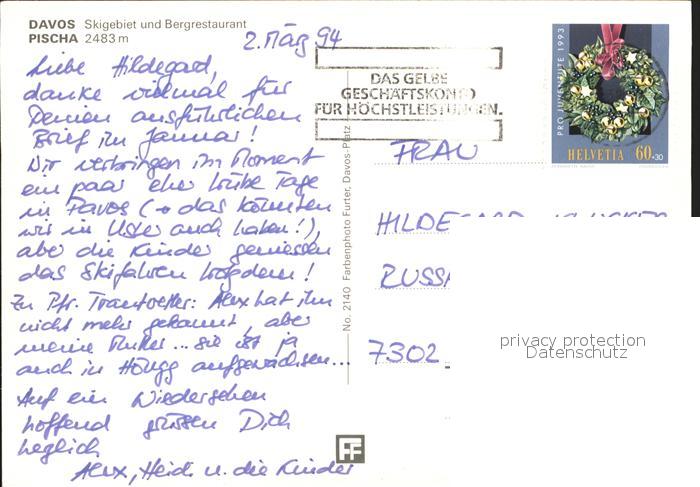 DAVOS Skigebiet und Bergrestaurant
PISCHA 2483 m
2. März 94
Liebe Hildegard,
danke vielmal für
Deinen ausführlichen
Brief im Januar!
Wir verbringen im Moment
ein paar eher trübe Tage
in Davos (+ das könnten
wir in Uster auch haben!),
aber die Kinder geniessen
das Skifahren trotzdem!
Zu Pfr. Trautvetter: Alex hat ihn
nicht mehr gekannt, aber
meine Mutter... sie ist ja
auch in Höngg aufgewachsen...
Auf ein Wiedersehen
hoffend grüssen Dich
herzlich
Alex, Heidi u. die Kinder
No. 2140 Farbenphoto Furter, Davos-Platz
DAS GELBE
GESCHÄFTSKONTO
FÜR HÖCHSTLEISTUNGEN.
PRO JUVENTUTE 1993
HELVETIA 60+30
FRAU
HILDEGARD
7302
privacy protection
Datenschutz